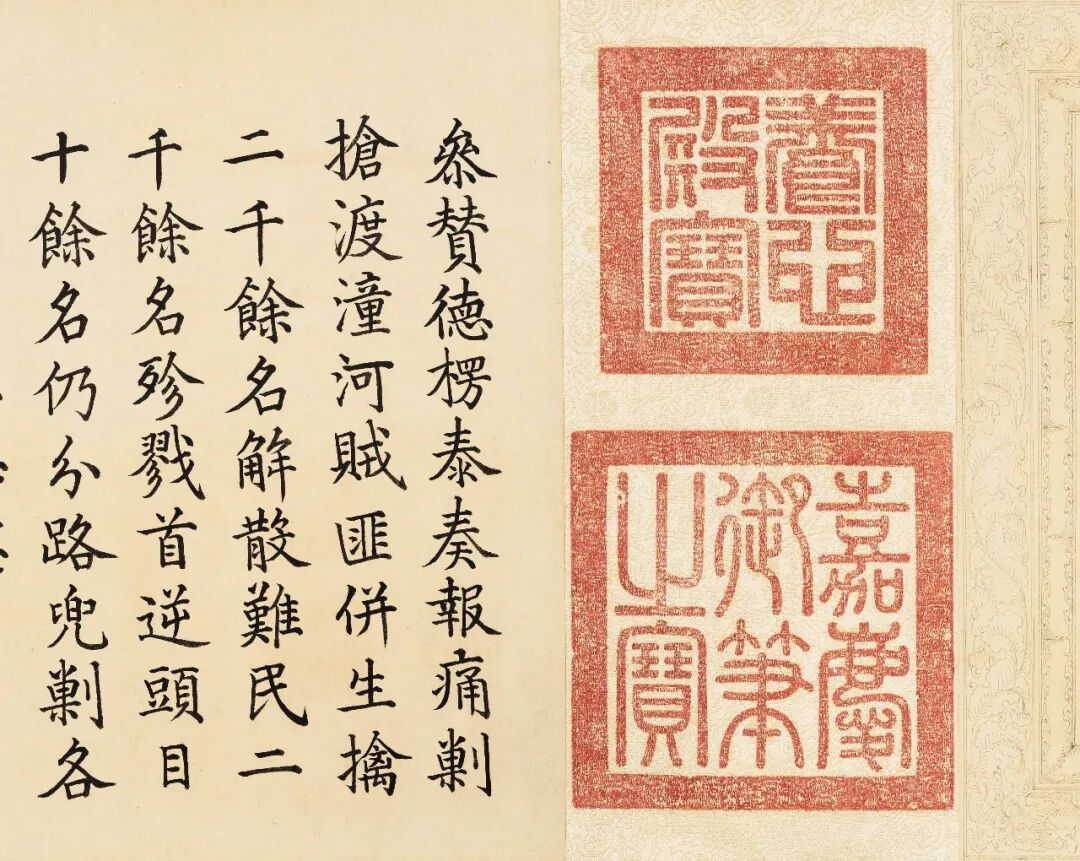 養心
殿寶
嘉慶
御筆
之寶
叅贊德楞泰奏報痛剿
搶渡潼河賊匪併生擒
二千餘名解散難民二
千餘名殄戮首逆頭目
十餘名仍分路兜剿各